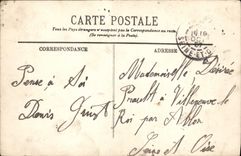 CARTE POSTALE
Tous les Pays étrangers n'acceptent pas la Correspondance au recto
(Se renseigner à la Poste)
CORRESPONDANCE
ADRESSE
Pense à toi
Denis
Mademoiselle Désirée
à Villeneuve le
Roi par Ablon
Seine et Oise